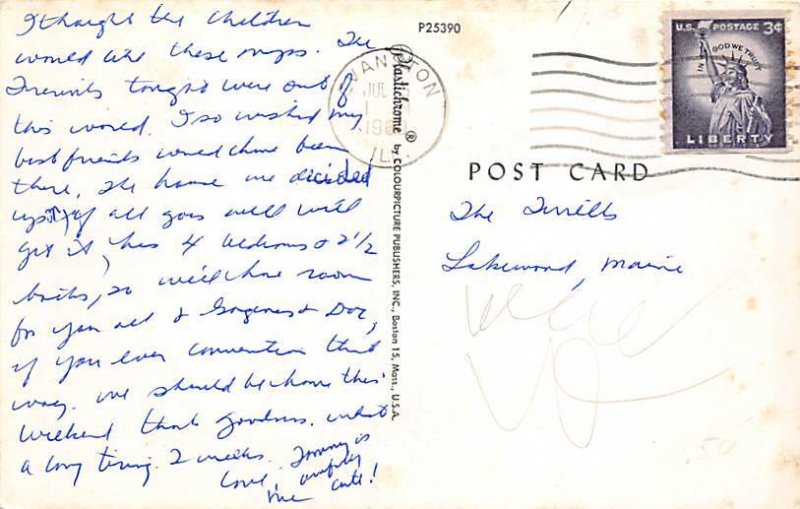 I thought the children
would like these maps. The
tonight were out of
this world. I so wished my
best friends would have been
there, The house we decided
upon, if all goes well will
get it, has 4 bedrooms & 2 1/2
baths, so we'll have room
for you all & & Doc,
if you ever convention this
way. We should be home this
weekend thank goodness. What
a long tiring 2 weeks. Tommy is
Love, awfully
cute!
P25390
Plastichrome ® by COLOURPICTURE PUBLISHERS, INC., Boston 15, Mass., U.S.A.
EVANSTON
JUL
196
ILL
U.S. POSTAGE 3¢
IN GOD WE TRUST
LIBERTY
POST CARD
The Terrills
Lakewood, Maine
.50